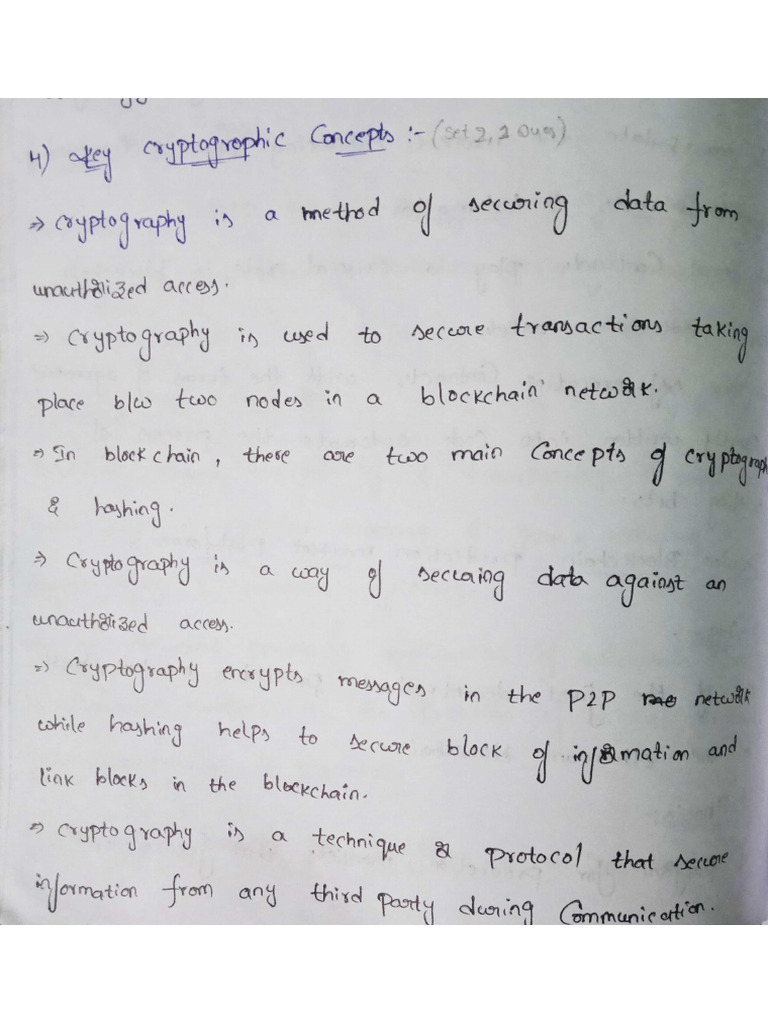 4) Key Cryptographic Concepts :- (Set 2, 2 Ques)
⇒ Cryptography is a method of securing data from
unauthorized access.
⇒ Cryptography is used to secure transactions taking
place b/w two nodes in a blockchain network.
⇒ In blockchain, there are two main concepts of cryptograph
& hashing.
⇒ Cryptography is a way of securing data against an
unauthorized access.
⇒ Cryptography encrypts messages in the P2P network
while hashing helps to secure block of information and
link blocks in the blockchain.
⇒ Cryptography is a technique & protocol that secure
information from any third party during Communication.